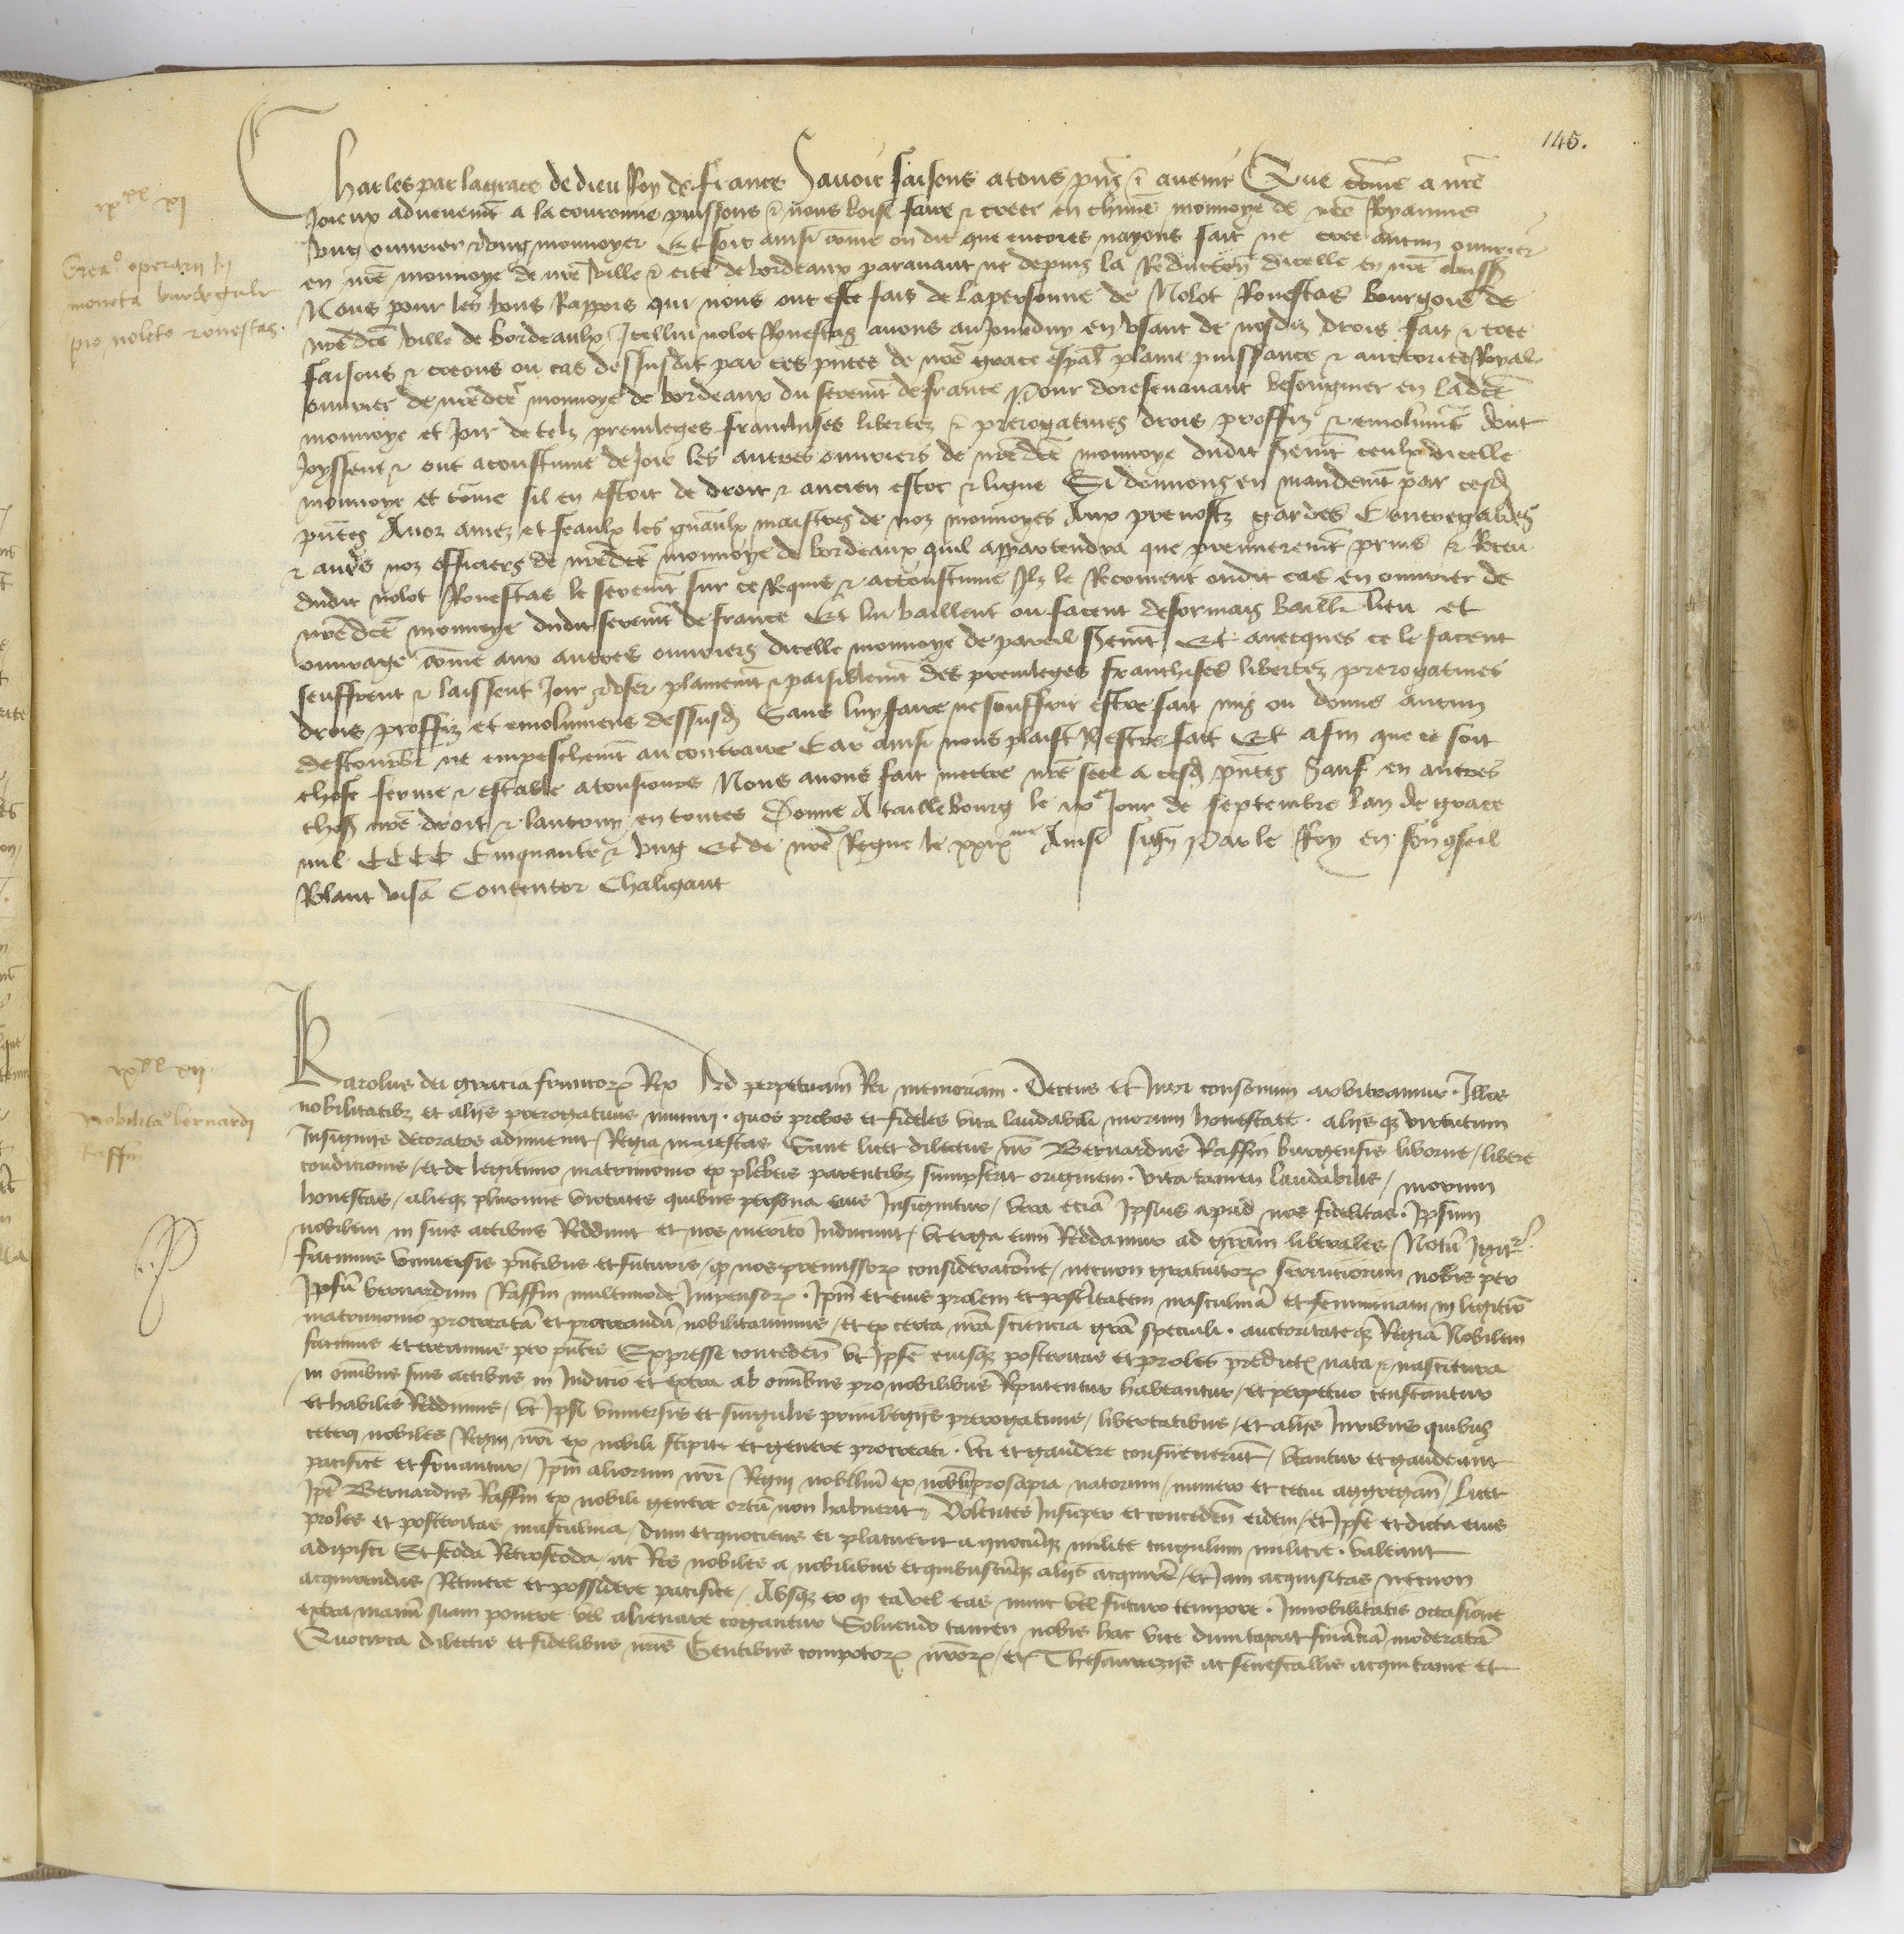 145.
Charles par la grace de dieu Roy de france Savoir faisons a tous pñs et avenir Que cõme a nrẽ
Joieux advenemẽt a la couronne puissons et nous loise faire et creer en chũne monnoye de nrẽ Royaume
ung ouvrier et ung monnoyer Et soit ainsi cõme on dit que encores nayons fait ne cree aucun ouvrier
en nrẽ monnoye de nrẽ ville et cite de bordeaux paravant ne depuis la Reduction dicelle en nrẽ obeiss
Nous pour les bons Rappors qui nous ont este fais de la personne de Nolot Ronestas bourgois de
nrẽdcẽ ville de bordeaulx Icellui nolot Ronestas avons au jourduy en usant de nosdiz drois fait et cree
faisons et creons ou cas dessusdit par ces pñtes de nrẽ grace espãl plaine puissance et auctorite Royal
ouvrier de nrẽdcẽ monnoye de bordeaux du seremẽt de france Pour doresenavant besongner en ladcẽ
monnoye et Joir de telz previleges franchises libertez et prerogatives drois proffiz et emolumẽs dont
Joyssent et ont acoustume de Joir les autres ouvriers de nrẽdcẽ monnoye dudit seremẽt ceulx dicelle
monnoye et cõme sil en estoit de droit et ancien estoc et ligne Si donnons en mandemẽt par cesd
pñtes A noz amez et feaulx les gñaulx maistres de noz monnoyes Aux prevostz gardes Contregardes
et aur̃es noz officiers de nrẽdcẽ monnoye de bordeaux quil appartendra que premieremẽt prins et Receu
dudit nolot Ronestas le seremẽt sur ce Requis et accoustume Ilz le Recoivent oudit cas en ouvrier de
nrẽdcẽ monnoye dudit seremẽt de france Et lui baillent ou facent desormais baillr̃ lieu et
ouvrage cõme aux autres ouvriers dicelle monnoye de pareil seremẽt Et avecques ce le facent
seuffrent et laissent Joir et user plainemẽt et paisiblemẽt des previleges franchises libertez prerogatives
drois proffiz et emolumens dessusd Sans luy faire ne souffrir estre fait mis ou donne aucun
destourbr̃ ne empeschemẽt au contraire Car ainsi nous plaist Il estre fait Et afin que ce soit
chose ferme et estable a tousjours Nous avons fait mettre nrẽ seel a cesd pñtes Sauf en autres
chos nrẽ droit et lautruy en toutes Donne A taillebourg le Jour de septembre lan de grace
mil CCCC Cinquante et ung Et de nrẽ Regne le xxix me Ainsi sign Par le Roy en son conseil
Rolant visa Contentor Chaligaut
ix xx xi
Creaõ operarii in
moneta burdegale
pro noleto ronestas.
Karolus dei gracia francorꝝ Rex Ad perpetuam Rei memoriam. Decens et Juri consonum arbitramur. Illos
nobilitatibꝫ et aliis prerogativis muniri. quos probos et fideles vita laudabili morum honestate. aliisqꝫ virtutum
Insigniis decoratos adinvenit Regia maiestas Sane licet dilectus nr̃ Bernardus Raffin burgensis liborne / libere
condicionis / et de legitimo matrimonio ex plebeis parentibꝫ sumpserit originem. vita tamen laudabilis / morum
honestas / alieqꝫ plurime virtutes quibus persona eius Insignitur / vera eciã Ipsius apud nos fidelitas. Ipsum
nobilem in suis actibus Reddunt et nos merito Inducunt / ut erga eum Reddamur ad grãm liberales / Notũ Igitr
facimus universis pñtibus et futuris / qꝫ nos premissorꝝ consideracõne / necnon gratuitorꝝ serviciorum nobis per
Ipsũ bernardum Raffin multimode Impensorꝝ. Ipm̃ et eius prolem et posterĩtatem masculinã et femininam in legitiõ
matrimonio procreatã et procreandã nobilitavimus / et ex certa nrã sciencia grã speciali. auctoritateqꝫ Regiã Nobilem
facimus et creamus per pñtes Expresse conceden̄ ut Ipse eiusqꝫ posteritas et proles predictꝝ nata et nascitura
in om̃ibus suis actibus in Judicio et extra ab om̃ibus pro nobilibus Reputentur habeantur / et perpetuo censeantur
et habiles Reddimus / ut Ipsi universis et singulis privilegiis prerogativis / libertatibus / et aliis Juribus quibus
ceteri nobiles Regni nrĩ ex nobili stipite et genere procreati. uti et gaudere consueverũt / utantur et gaudeant
pacifice et fruantur / Ipm̃ aliorum nrĩ Regni nobilliũ ex nobili prosapia natorum / numero et cetui aggregan̄ / Licet
Ipẽ Bernardus Raffin ex nobili genere ortũ non habuerit / Volentes Insuper et conceden̄ eidem / et Ipse et dicta eius
proles et posteritas masculina / dum et quociens ei placuerit a quocũqꝫ milite cingulum milicie. valeant
adipisci Et feoda Retrofeoda ac Res nobiles a nobilibus et quibuscũqꝫ aliis acquirẽ / et Jam acquisitas necnon
acquirendas Retinere et possidere pacifice / Absqꝫ eo qꝫ ea vel eas nunc vel futuro tempore. Innobilitatis occasione
extra manũ suam ponere vel alienare cogantur Solvendo tamen nobis hac vice dumtaxat finãciã moderatã
Quocirca dilectis et fidelibus nrĩs Gentibus compotorꝝ nrõrꝝ / et Thesaurariis ac senescallis acquitanie et
ix xx xii
Nobilitaõ bernardi
Raffin